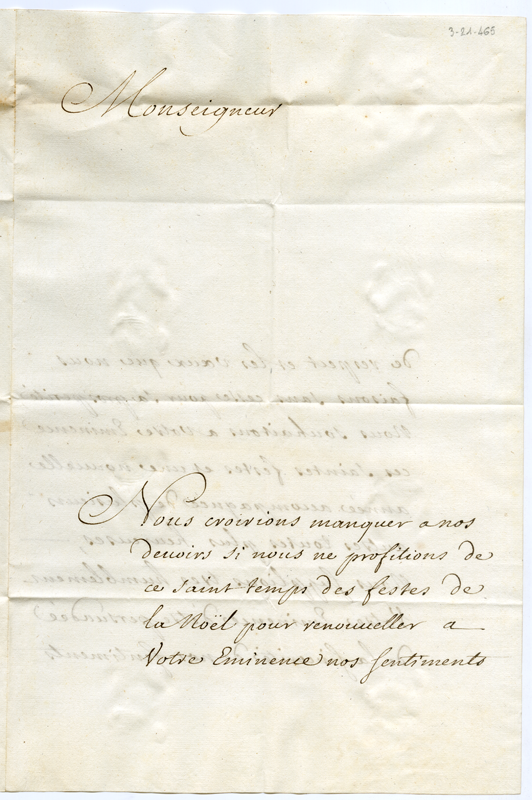 3-21-465
Monseigneur
Nous croirions manquer a nos
devoirs si nous ne profitions de
ce saint temps des festes de
la Noël pour renouveller a
Votre Eminence nos sentiments